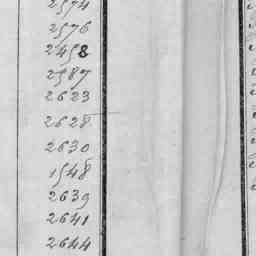 2574
2576
2458
2587
2623
2628
2630
1548
2639
2641
2644